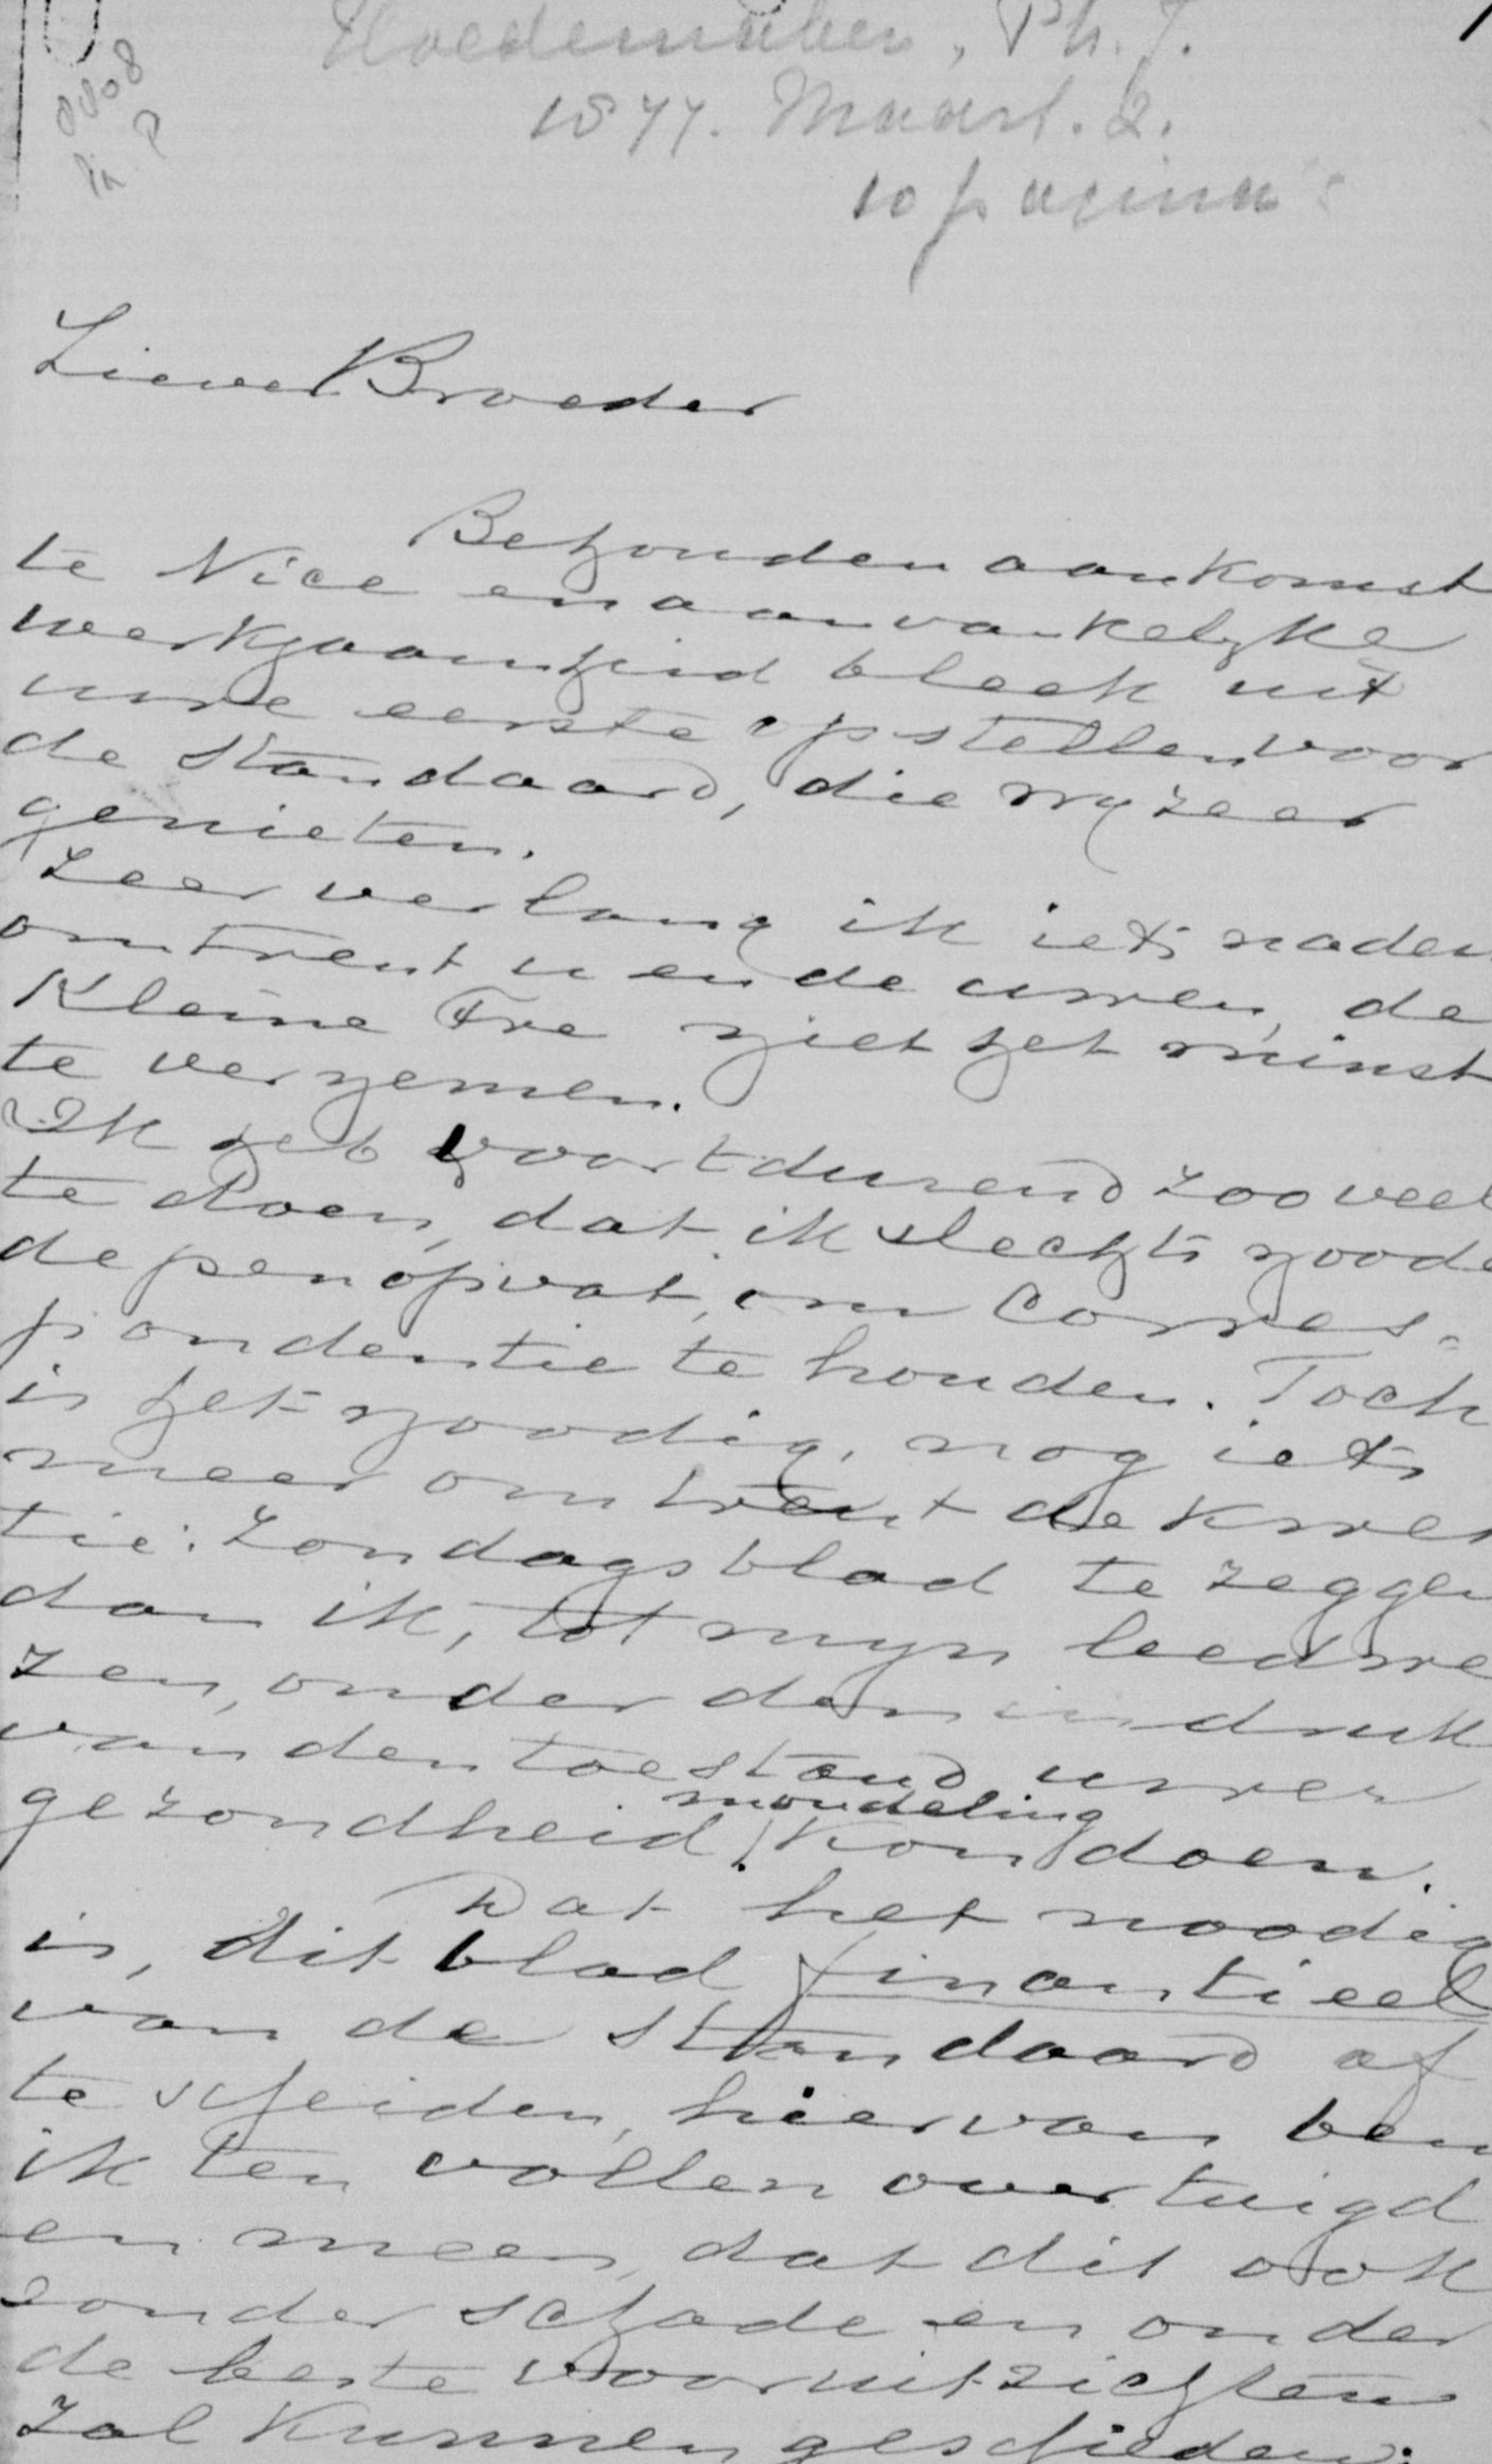 Hoedemaker, Ph. J.
1877. Maart. 2.
10 pagina's
Lieve Broeder
Behouden aankomst
te Nice en aanvankelyke
werkzaamheid bleek uit
uwe eerste opstellen voor
de Standaard, die wy zeer
genieten.
Zeer verlang ik iets nader
omtrent u en de uwen, de
Kleine Fre niet het minst
te vernemen.
Ik heb voortdurend zooveel
te doen, dat ik slechts noode
de pen opvat, om Corres=
pondentie te houden. Toch
is het noodig, nog iets
meer omtrent de kwes
tie: Zondagsblad te zeggen
dan ik, tot myn leedwe
zen, onder den indruk
van den toestand uwer
mondeling
gezondheid kon doen.
Dat het noodig
is, dit blad finantieel
van de Standaard af
te scheiden, hiervan ben
ik ten vollen overtuigd
en meen, dat dit ook
zonder schade en onder
de beste vooruitzichten
zal kunnen geschieden: